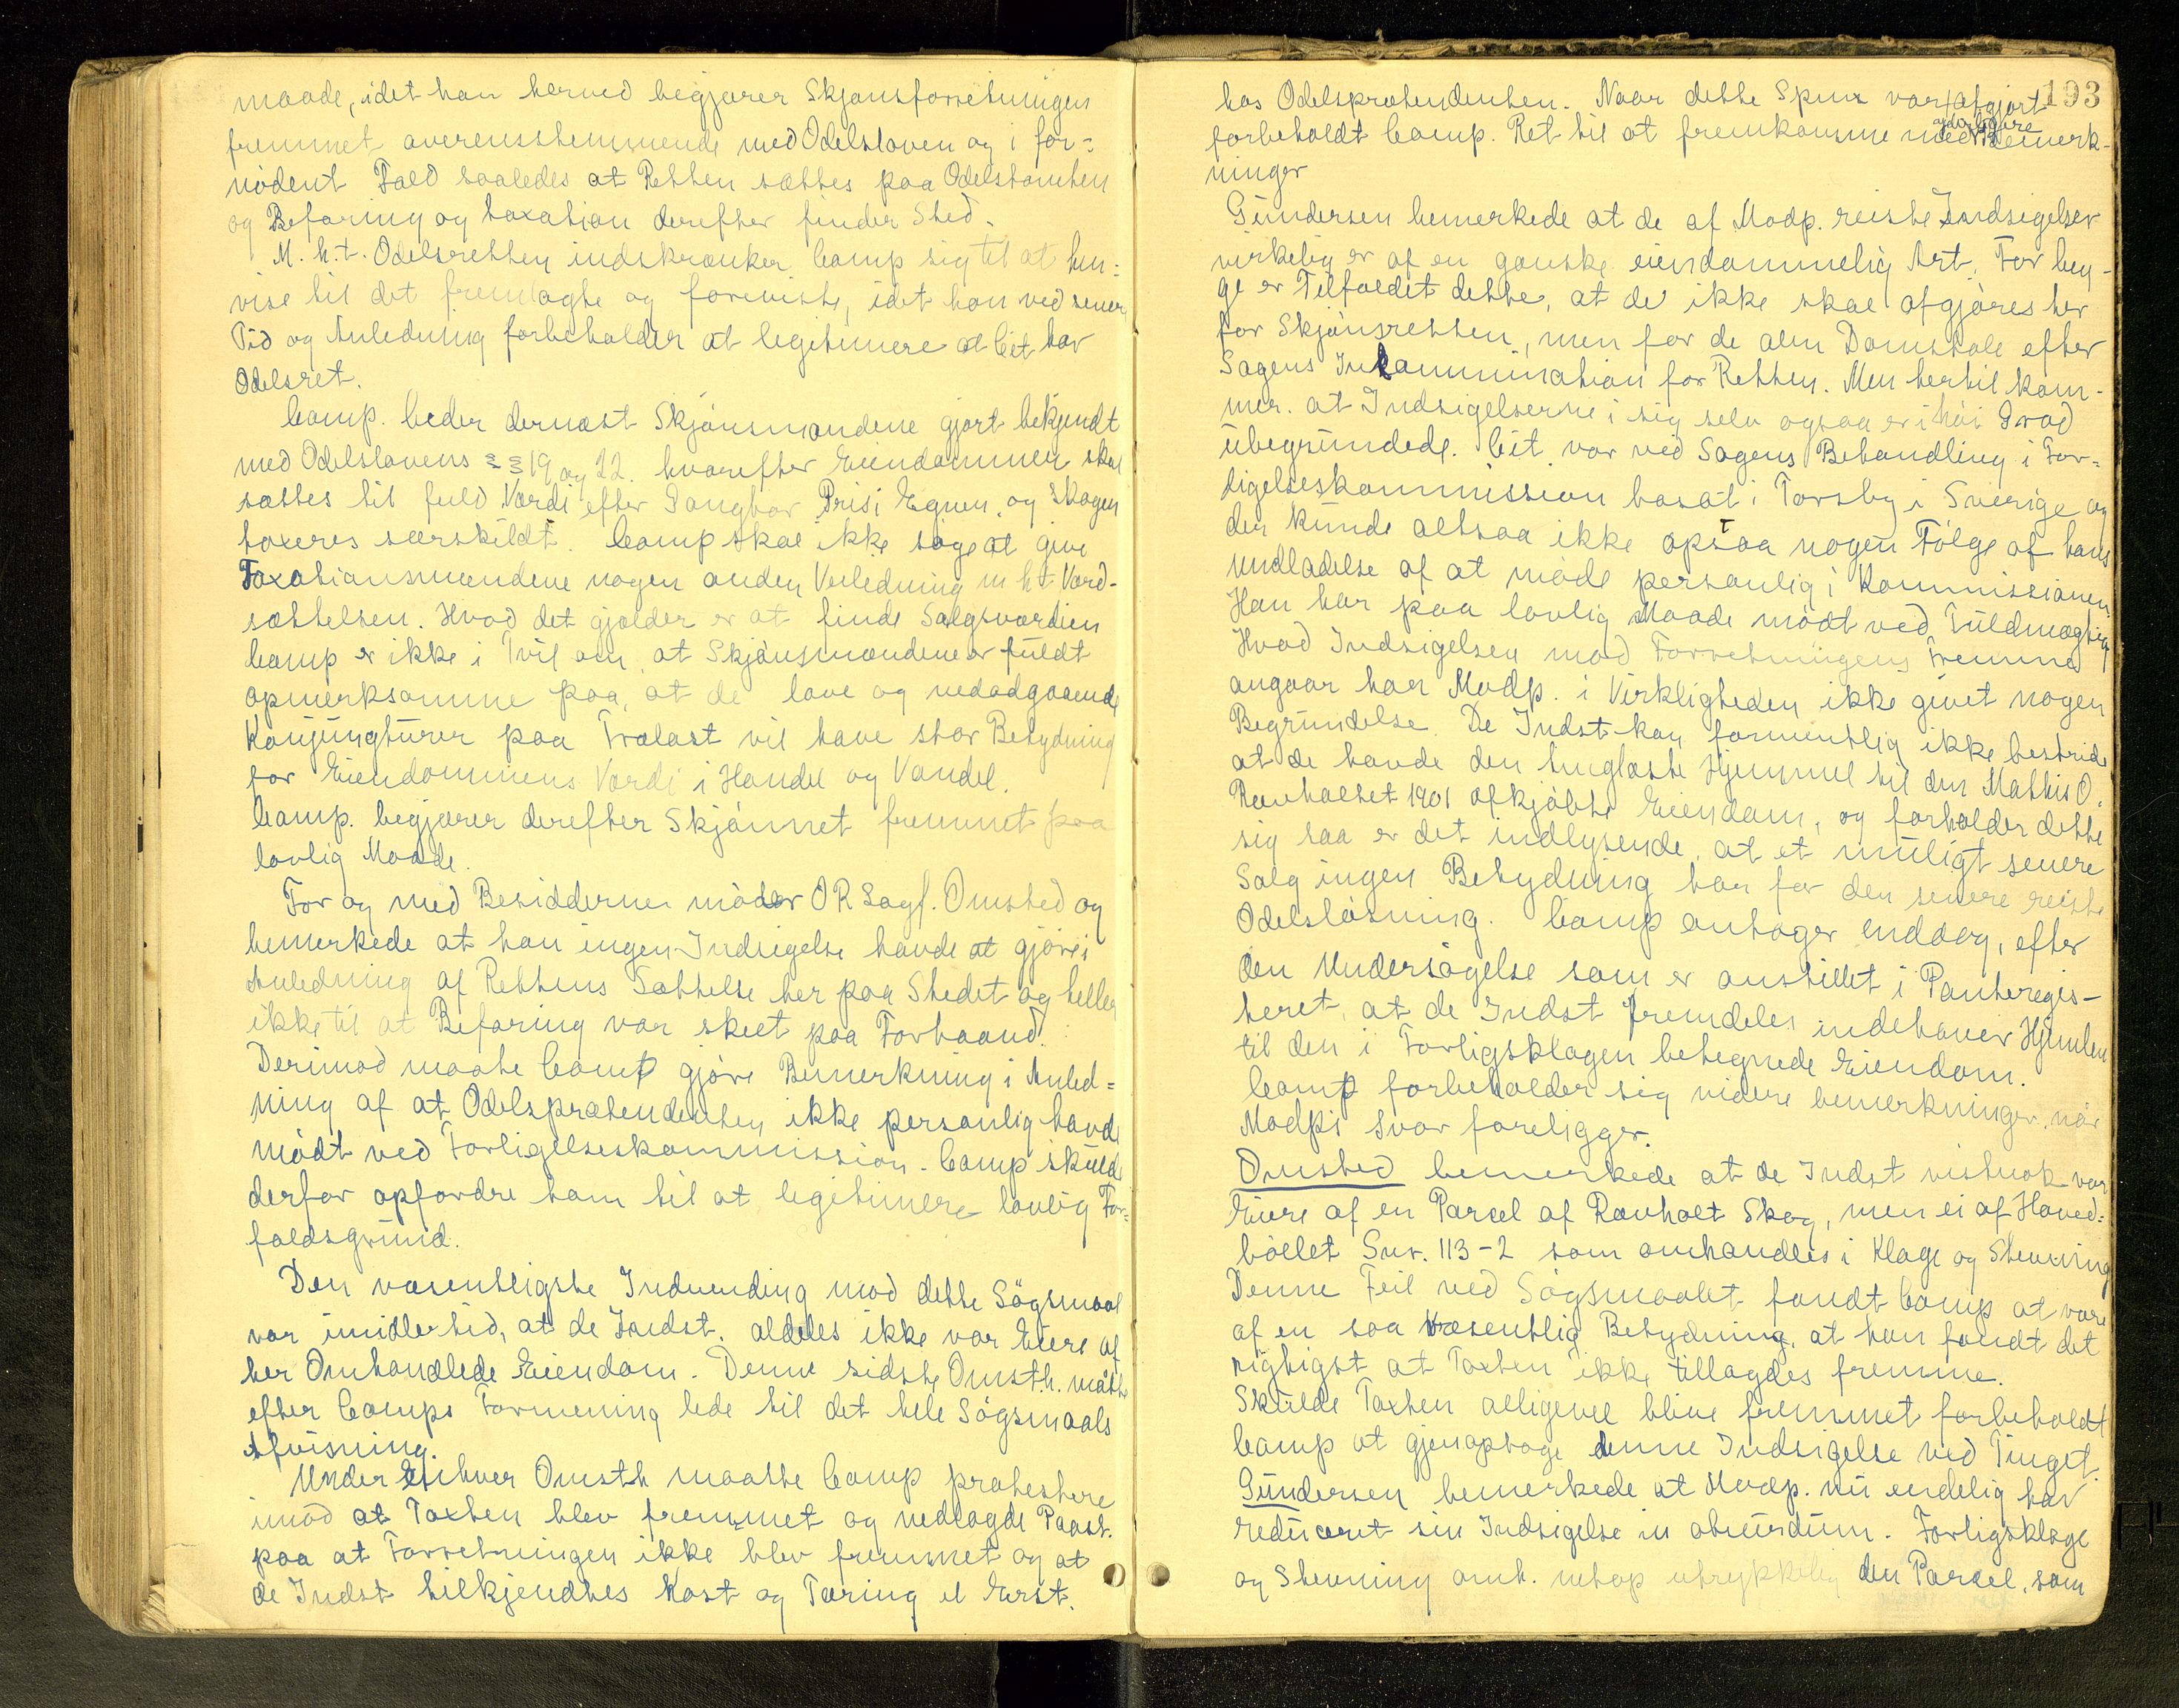 maade, idet han herved begjærer Skjønsforretningen
fremmet overensstemmende med Odelsloven og i for-
nødent Fald saaledes at Retten sættes paa Odelstomten
og Befaring og taxation derefter finder Sted.
M. h. t. Odelsretten indskrænker Comp sig til at hen-
vise til det fremlagte og foreviste, idet han ved senere
Tid og Anledning forbeholder at legitimere at Cit har
Odelsret.
Comp. beder dernæst Skjønsmændene gjort bekjendt
med Odelslovens §§ 19 og 22. hvorefter Eiendommen skal
sættes til fuld Værdi efter Gangbar Pris i Egnen, og Skogen
taxeres særskildt. Comp skal ikke søge at give
Taxationsmændene nogen anden Veiledning m h t Værd-
sættelsen. Hvad det gjælder er at finde Salgsværdien
Comp er ikke i Tvil om, at Skjønsmændene er fuldt
opmerksomme paa, at de lave og nedadgaaende
Konjungturer paa Trælast vil have stor Betydning
for Eiendommens Værdi i Handel og Vandel.
Comp. begjærer derefter Skjønnet fremmet paa
lovlig Maade.
For og med Besidderne møder OR Sagf. Omsted og
bemerkede at han ingen Indsigelse havde at gjøre i
Anledning af Rettens Sættelse her paa Stedet og heller
ikke til at Befaring var skeet paa Forhaand.
Derimod maate Comp gjøre Bemerkning i Anled-
ning af at Odelsprætendenten ikke personlig havde
mødt ved Forligelseskommission. Comp skulde
derfor opfordre ham til at legitimere lovlig For-
faldsgrund.
Den væsentligste Indvending mod dette Søgsmaal
var imidlertid, at de Indst. aldeles ikke var Eiere af
her Omhandlede Eiendom. Denne sidste Omsth. måtte
efter Comps Formening lede til det hele Søgsmaals
Afvisning.
Under Enhver Omsth maatte Comp protestere
imod at Taxten blev fremmet og nedlagde Paast.
paa at Forretningen ikke blev fremmet og at
de Indst tilkjendtes Kost og Tæring el Erst.
193
hos Odelsprætendenten. Naar dette Spm var afgjort
forbeholdt Comp. Ret til at fremkomme med yderligere Bemerk-
ninger
Gundersen bemerkede at de af Modp. reiste Indsigelser
virkelig er af en ganske eiendommelig Art. For beg-
ge er Tilfældet dette, at de ikke skal afgjøres her
for Skjønsretten, men for de alm Domstole efter
Sagens Inkammination for Retten. Men hertil kom-
mer. at Indsigelserne i sig selv ogsaa er i høi Grad
ubegrundede. Cit var ved Sagens Behandling i For-
ligelseskommission bosat i Torsby i Sverige og
der kunde altsaa ikke opstaa nogen Følge af hans
undladelse af at møde personlig i Kommissionen.
Han har paa lovlig Maade mødt ved Fuldmægtig
Hvad Indsigelsen mod Forretningens Fremme
angaar har Modp. i Virkligheden ikke givet nogen
Begrundelse. De Indst. kan formentlig ikke bestride
at de havde den tinglæste Hjemmel til den Mathis O.
Ravholtet 1901 afkjøbte Eiendom, og forholder dette
sig saa er det indlysende, at et muligt senere
Salg ingen Betydning har for den senere reiste
Odelsløsning. Comp antager endog, efter
den Undersøgelse som er anstillet i Panteregis-
teret, at de Indst fremdeles indehaver Hjemlen
til den i Forligsklagen betegnede Eiendom.
Comp forbeholder sig videre bemerkninger, når
Modpi Svar foreligger.
Omsted bemerkede at de Indst vistnok var
Eiere af en Parcel af Rævholt Skog, men ei af Hoved-
bøllet Gnr. 113-2 som omhandles i Klage og Stevning
Denne Feil ved Søgsmaalet fandt Comp at være
af en saa væsentlig Betydning, at han fandt det
rigtigst at Taxten ikke tillagdes fremme.
Skulde Taxten alligevel blive fremmet forbeholdt
Comp at gjenoptage denne Indsigelse ved Tinget.
Gundersen bemerkede at Modp. nu endelig har
reduceret sin Indsigelse in absurdum. Forligsklage
og Stevning omh. netop utrykkelig den Parcel, som